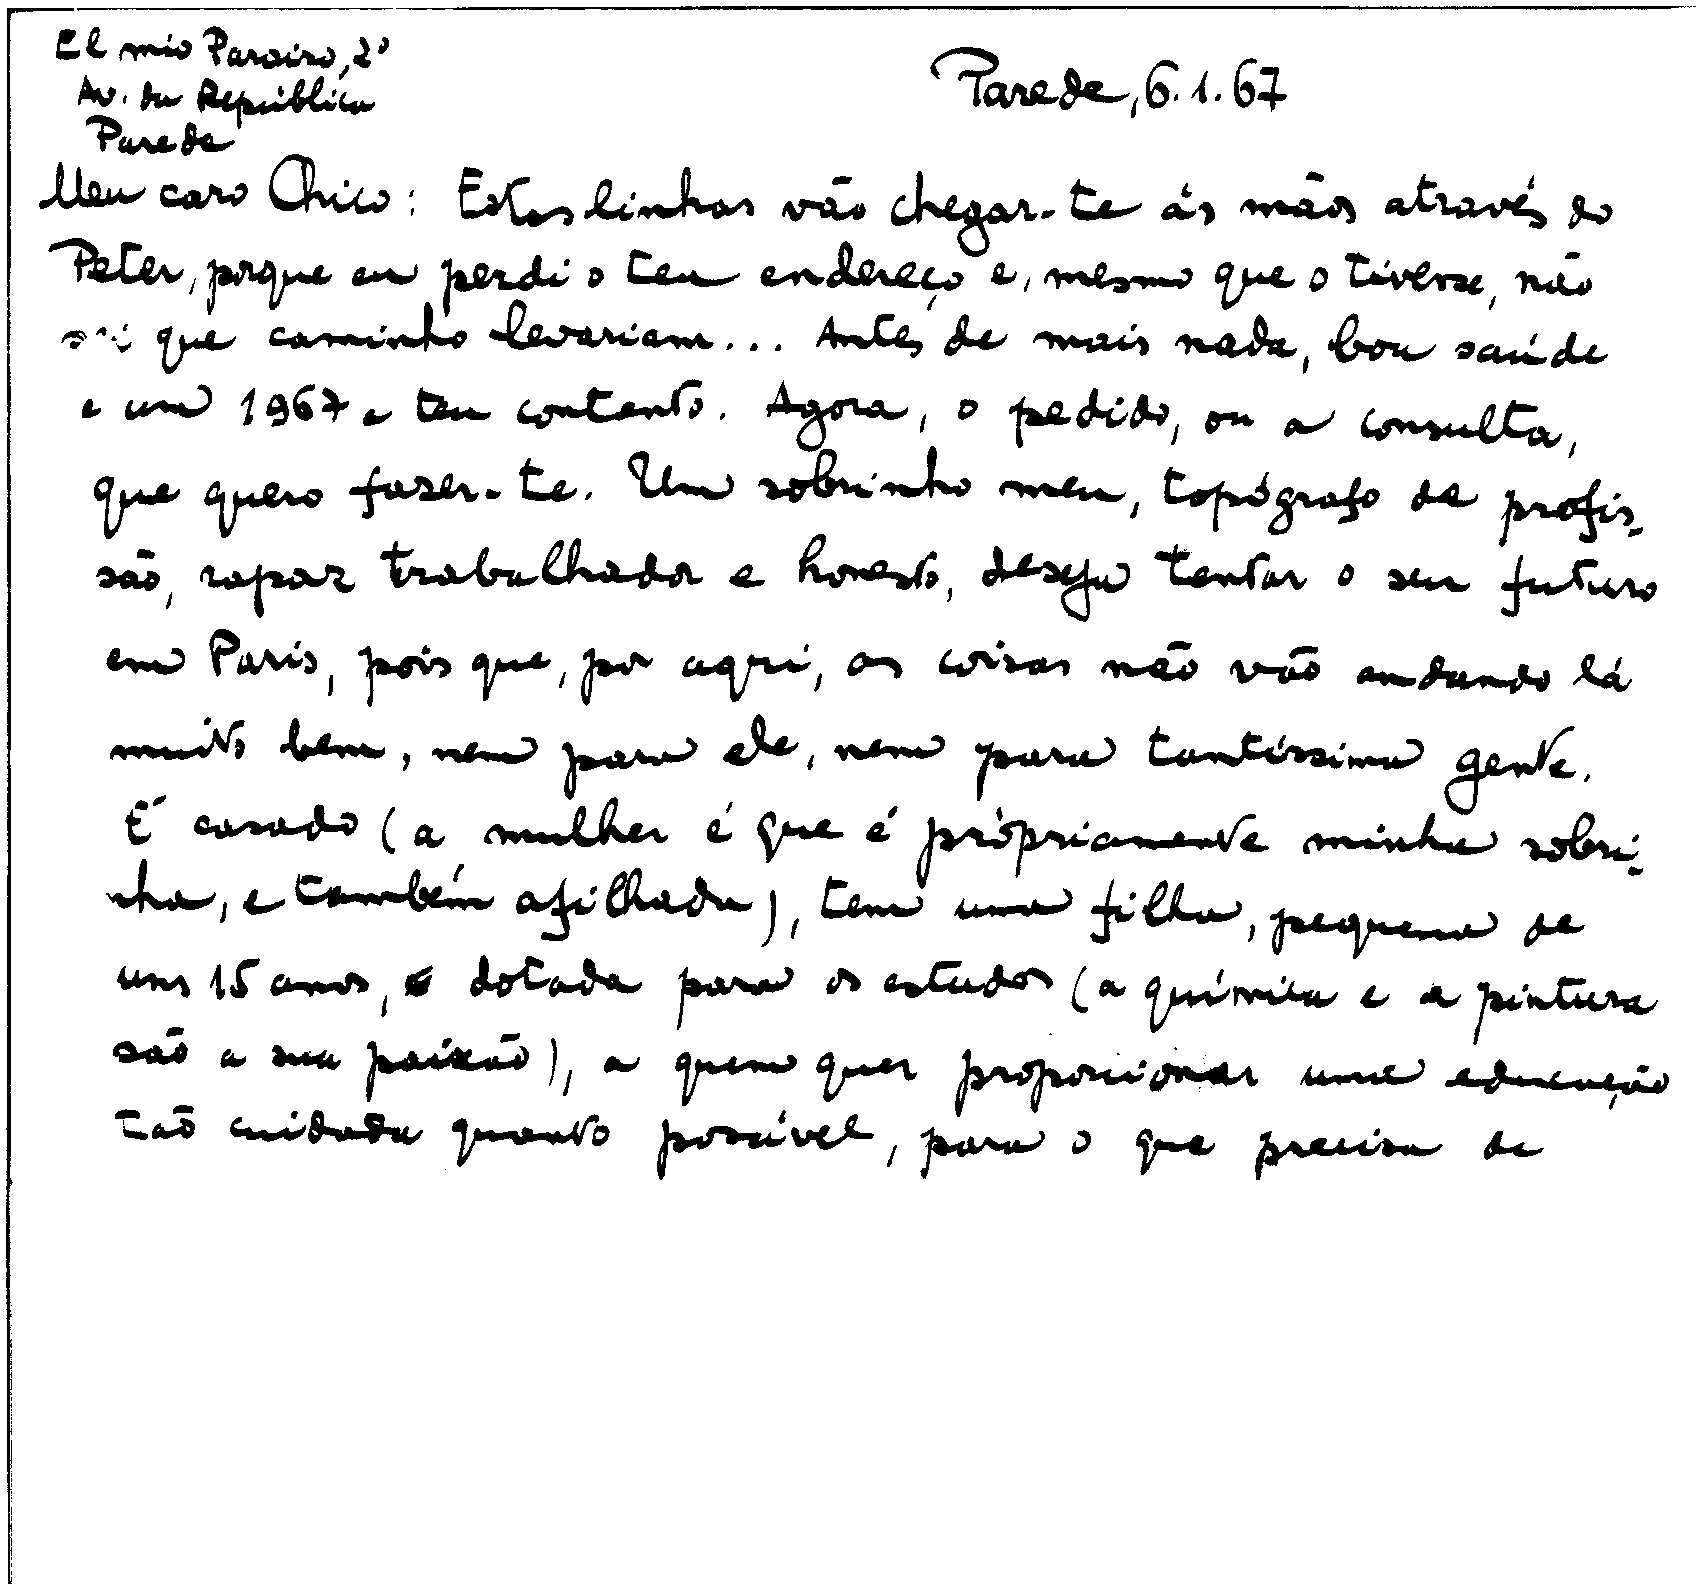 El mio Paraiso, 2º
Av. da República
Parede
Parede, 6.1.67
Meu caro Chico: Estas linhas vão chegar-te às mãos através do
Peter, porque eu perdi o teu endereço e, mesmo que o tivesse, não
sei que caminho levariam... Antes de mais nada, boa saúde
e um 1967 a teu contento. Agora, o pedido, ou a consulta,
que quero fazer-te. Um sobrinho meu, topógrafo de profis-
são, rapaz trabalhador e honesto, deseja tentar o seu futuro
em Paris, pois que, por aqui, as coisas não vão andando lá
muito bem, nem para ele, nem para tantíssima gente.
É casado (a mulher é que é pròpriamente minha sobri-
nha, e também afilhada), tem uma filha, pequena de
uns 15 anos, e dotada para os estudos (a química e a pintura
são a sua paixão), a quem quer proporcionar uma educação
tão cuidada quanto possível, para o que precisa de